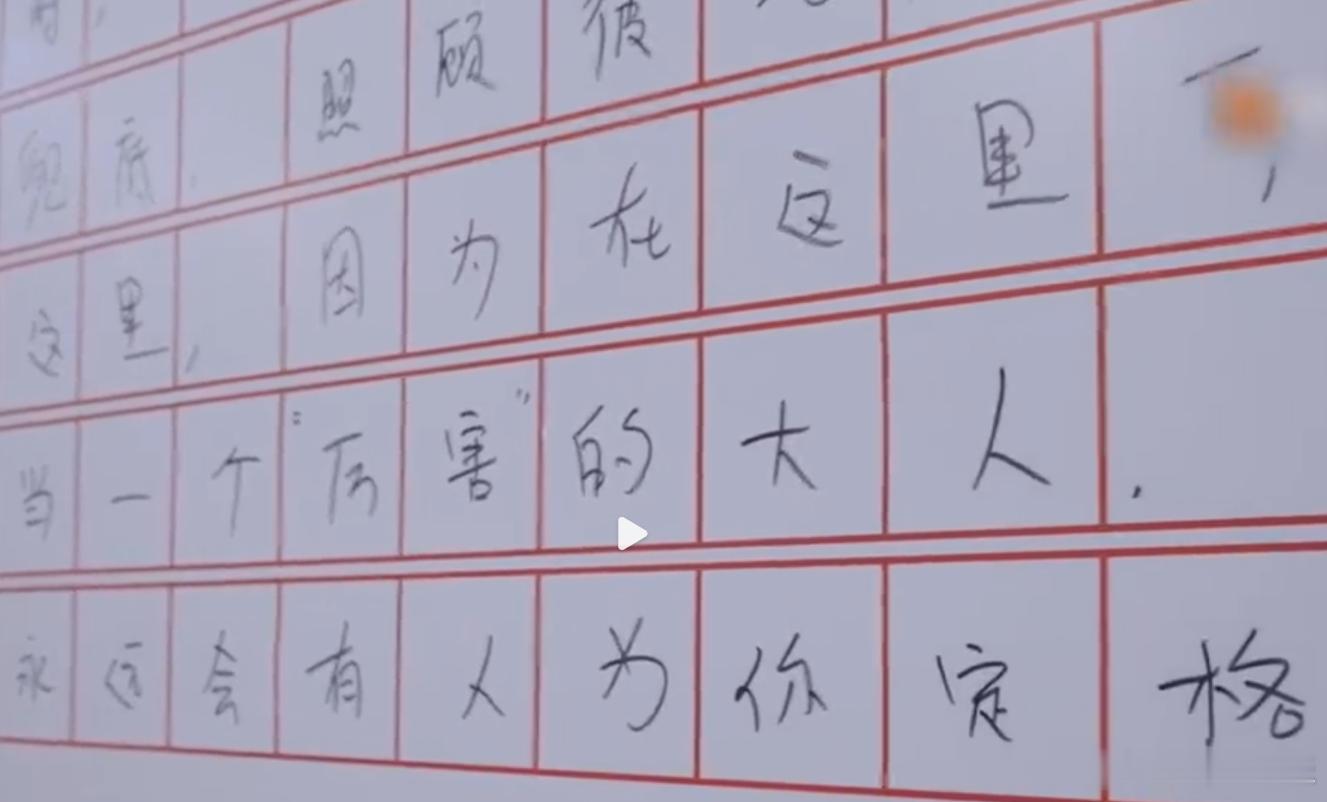 时,
兜底. 照顾彼
这里, 因为在这里,
当一个"厉害"的大人.
永远会有人为你定格